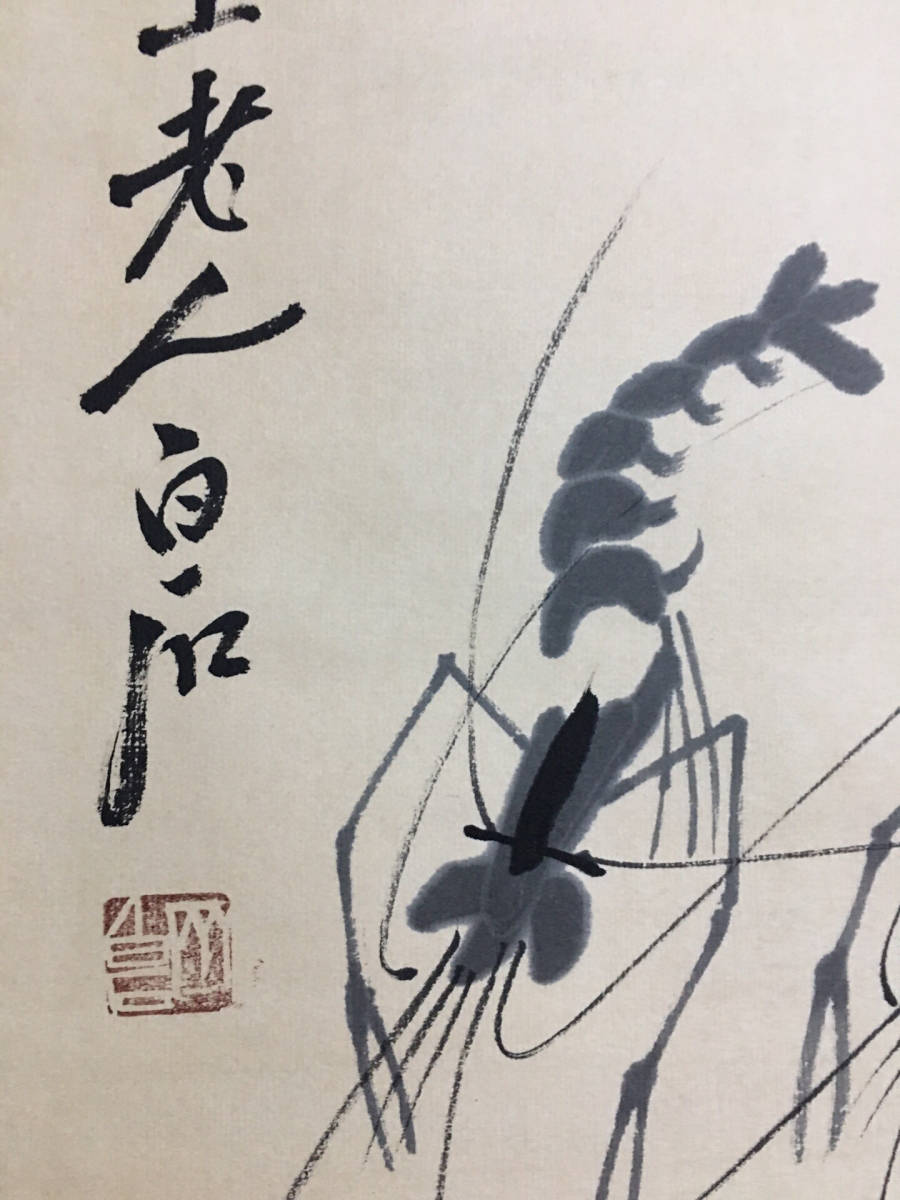 老人白石